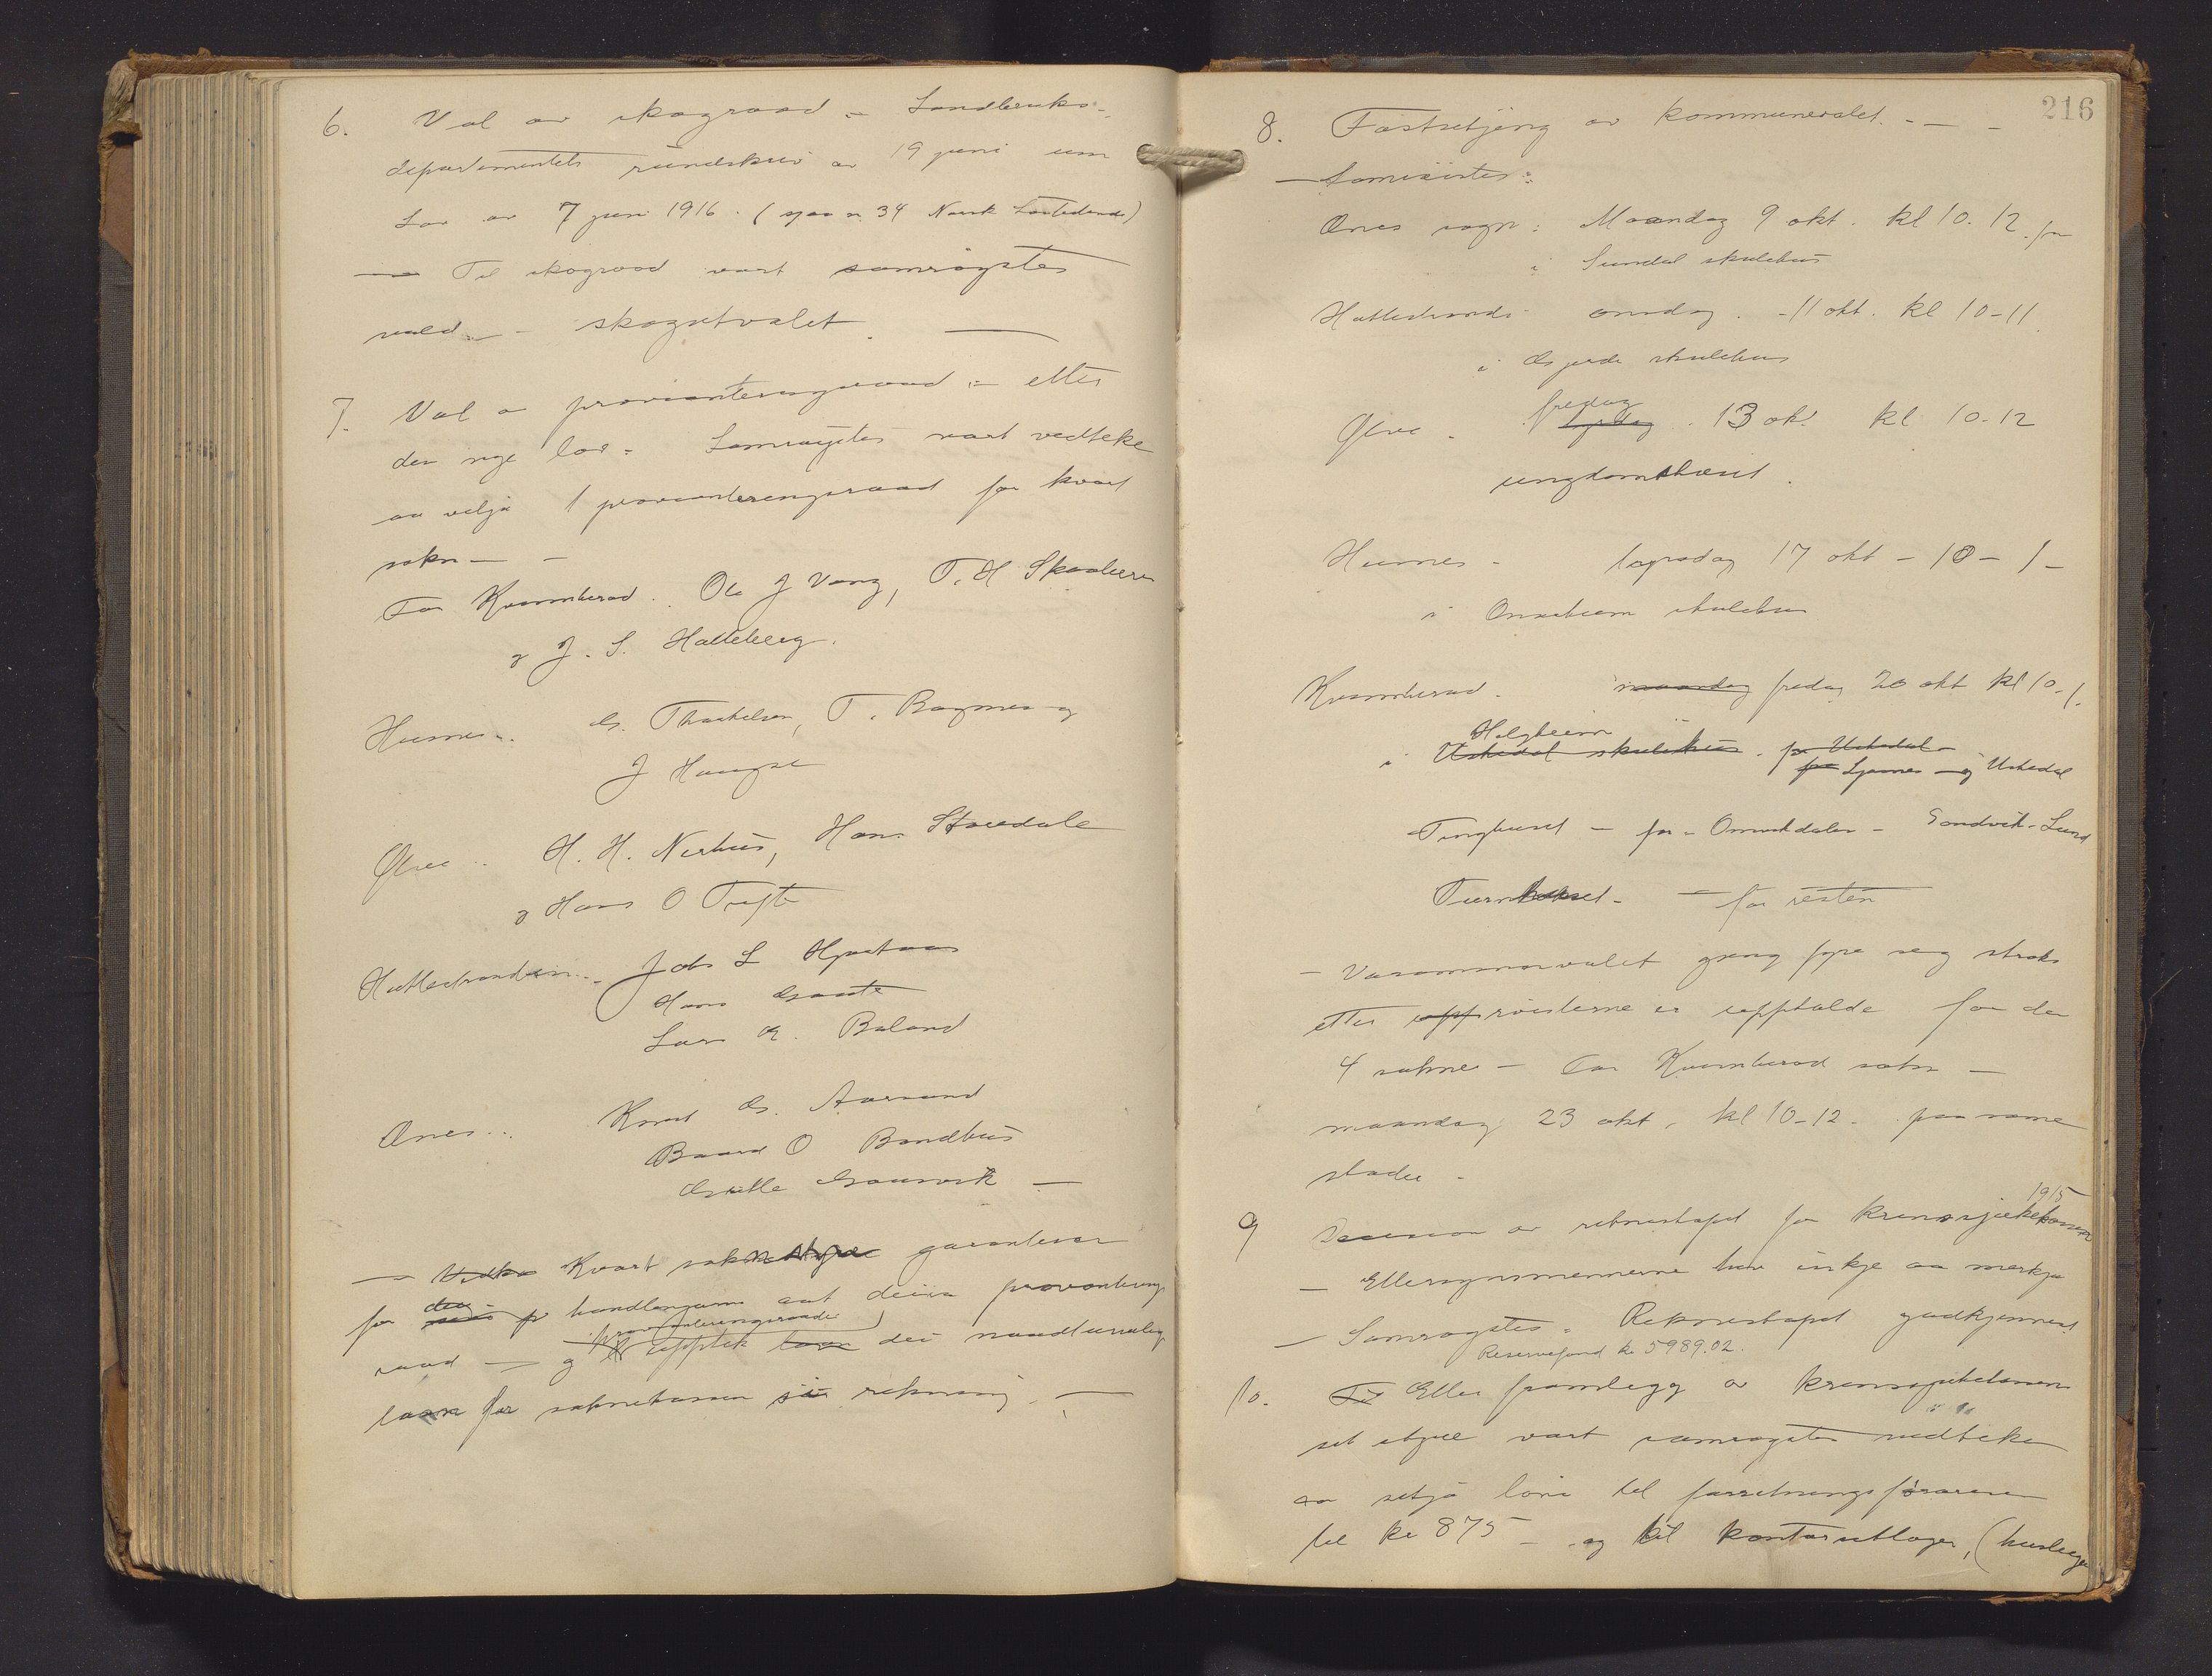 6. Val av skograad - Landbruks-
departementets rundskriv av 19 juni um
Lov av 7 juni 1916. ( nr. 34 Norsk Lovtidend)
— Til skograad vart samröystes
vald - skogutvalet. —
7. Val av provianteringsraad :- etter
den nye lov - Samröystes vart vedteke
aa velja 1 provianteringsraad for kvart
sokn - -
For Kvinnherad. Ole J Vang, T. H Skaaluren
og J. S. Hatteberg.
Husnes.. G. Thorkelsen, T. Bogsnes og
J Haugse
Ølve .. H. H. Nerhus, Hans Storedale
og Hans O Tufte
Hatlestranden.. Jobs L
Hans
Lars Røland
Ænes.. Knut G. Aarsand
Baard O Bondhus
—
— Vedka Kvart soknestyre garanterar
for handlingarne aat deira provianterings
provianteringsraadi
raad — og upptek dei naudturvelege
laan for soknekassen si rekning. —
216
8. Fastsetjing av kommunevalet. - —
— Samröistes:
Ænes sogn: Maandag 9 okt. kl 10. 12. fm
i Sundal skulehus
Hatlestrand - onsdag. - 11 okt. kl 10-11.
i skulehus
fredag
Ølve - 13 okt kl 10-12
ungdomshuset.
Husnes - 17 okt - 10 - 1 -
i Onarheim skulehus
Kvinnherad. - maandag fredag 20 okt kl 10-1.
Helgheim
i Uskedal skulehus. for Uskedal -
for og Uskedal
Tinghuset - for - Omvikdalen - Sandvik - Lund
Turnhuset - — for resten
- Varamannsvalet gjeng fyre seg straks
etter upp röisterne er upptalde for dei
4 sokne - For Kvinnherad sokn -
maandag 23 okt, kl 10-12. paa same
stader.
1915
9 Decision av rekneskapet for krinssjukekassen
— Ettersynsmennerne hev inkje aa merkja
— Samröystes - Rekneskapet godkjennest.
Reservefond kr 5989.02.
10. Etter framlegg av krinssjukekassen
sit styre vart samröystes vedteke
aa setja löni til forretningsføraren
til kr 875 - og til kontorutlogor, (husleige